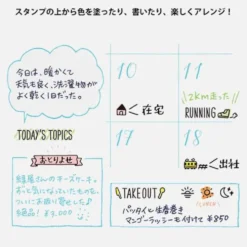 スタンプの上から色を塗ったり、書いたり、楽しくアレンジ！
今日は、暖かくて
天気も良く、洗濯物が
よく乾く1日だった。
10
11
く在宅
12km走った
RUNNING
TODAY'S TOPICS
17
18
く出社
おとりよせ
さんのチーズケーキ。
ずっと気になっていたものを、
ついにお取り寄せした♪
絶品！ ¥3,000
TAKEOUT
パッタイと生春巻き
マンゴーラッシーも付けて ¥950